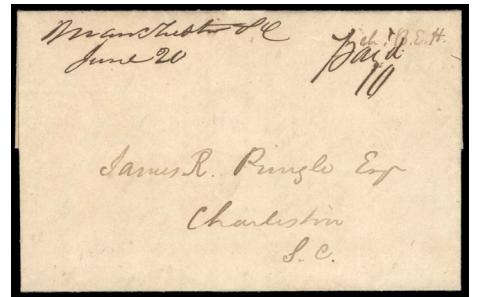 Manchester S C
June 20
Paid
10
ch. B. E. H.
James R. Pringle Esq
Charleston
S. C.